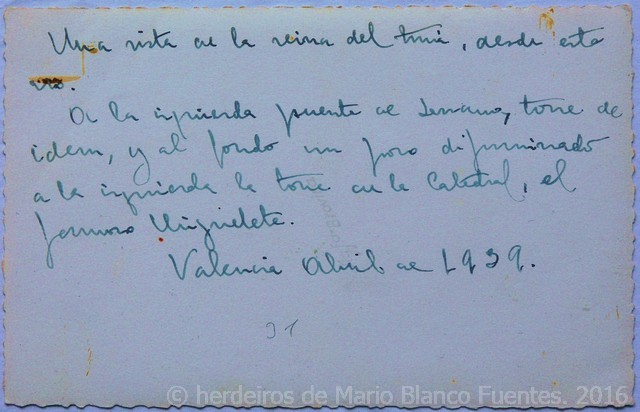 Una vista de la reina del turia, desde este
rio.
A la izquierda puente de Serrano, torre de
idem, y al fondo un poco difuminado
a la izquierda la torre de la Catedral, el
famoso Miguelete.
Valencia Abril de 1939.
31
© herdeiros de Mario Blanco Fuentes. 2016